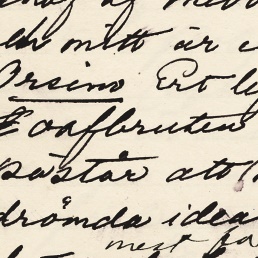 mitt är
Orsino Ert
oafbruten
påstår att
drömda idea
mest fa